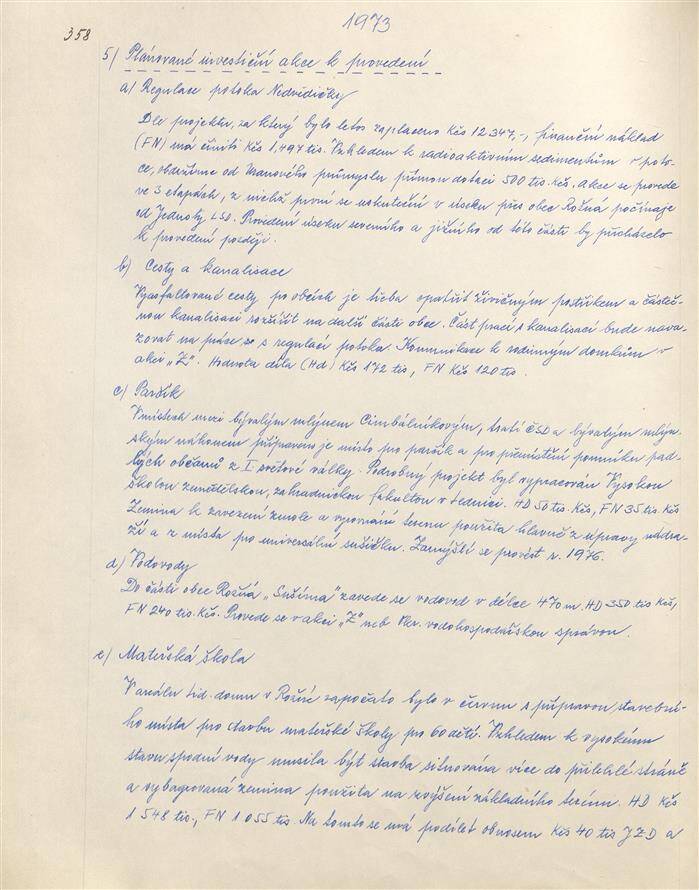 1973
358
5/ Plánované investiční akce k provedení
a/ Regulace potoka Nedvědičky
Dle projektu, za který bylo letos zaplaceno Kčs 12.347,-, finanční náklad
(FN) má činiti Kčs 1,497 tis. Vzhledem k radioaktivním sedimentům v poto-
ce, obdržíme od Uranového průmyslu přímou dotaci 500 tis. Kčs. Akce se provede
ve 3 etapách, z nichž první se uskuteční v úseku přes obec Rožná počínaje
od Jednoty LSD. Provedení úseku severního a jižního od této části by přicházelo
k provedení později.
b/ Cesty a kanalisace
Vyasfaltované cesty po obcích je třeba opatřit živičným postřikem a částeč-
nou kanalisaci rozšířit na další části obce. Část prací s kanalisací bude nava-
zovat na práce se s regulací potoka. Komunikace k rodinným domkům v
akci "Z". Hodnota díla (Hd) Kčs 172 tis, FN Kčs 120 tis.
c/ Parčík
V místech mezi bývalým mlýnem Cimbálníkovým, tratí ČSD a bývalým mlýn-
ským náhonem připraveno je místo pro parčík a pro přemístění pomníku pad-
lých občanů z I. světové války. Podrobný projekt byl vypracován Vysokou
školou zemědělskou, zahradnickou fakultou v Lednici. HD 50 tis. Kčs, FN 35 tis Kčs
Zemina k zavezení zmole a vyrovnání terenu použita hlavně z úpravy nádra-
ží a z místa pro universální sušičku. Zamýšlí se provést r. 1976.
d/ Vodovody
Do části obce Rožná "Sušírna" zavede se vodovod v délce 470 m. HD 350 tis Kčs,
FN 240 tis. Kčs. Provede se v akci "Z" neb Okr. vodohospodářskou správou.
e/ Mateřská škola
V areálu lid. domu v Rožné započato bylo v červnu s přípravou stavební-
ho místa pro stavbu mateřské školy pro 60 dětí. Vzhledem k vysokému
stavu spodní vody musila být stavba situována více do přilehlé stráně
a vybagrovaná zemina použita na zvýšení základního terénu. HD Kčs
1 548 tis., FN 1 055 tis. Na tomto se má podílet obnosem Kčs 40 tis JZD a